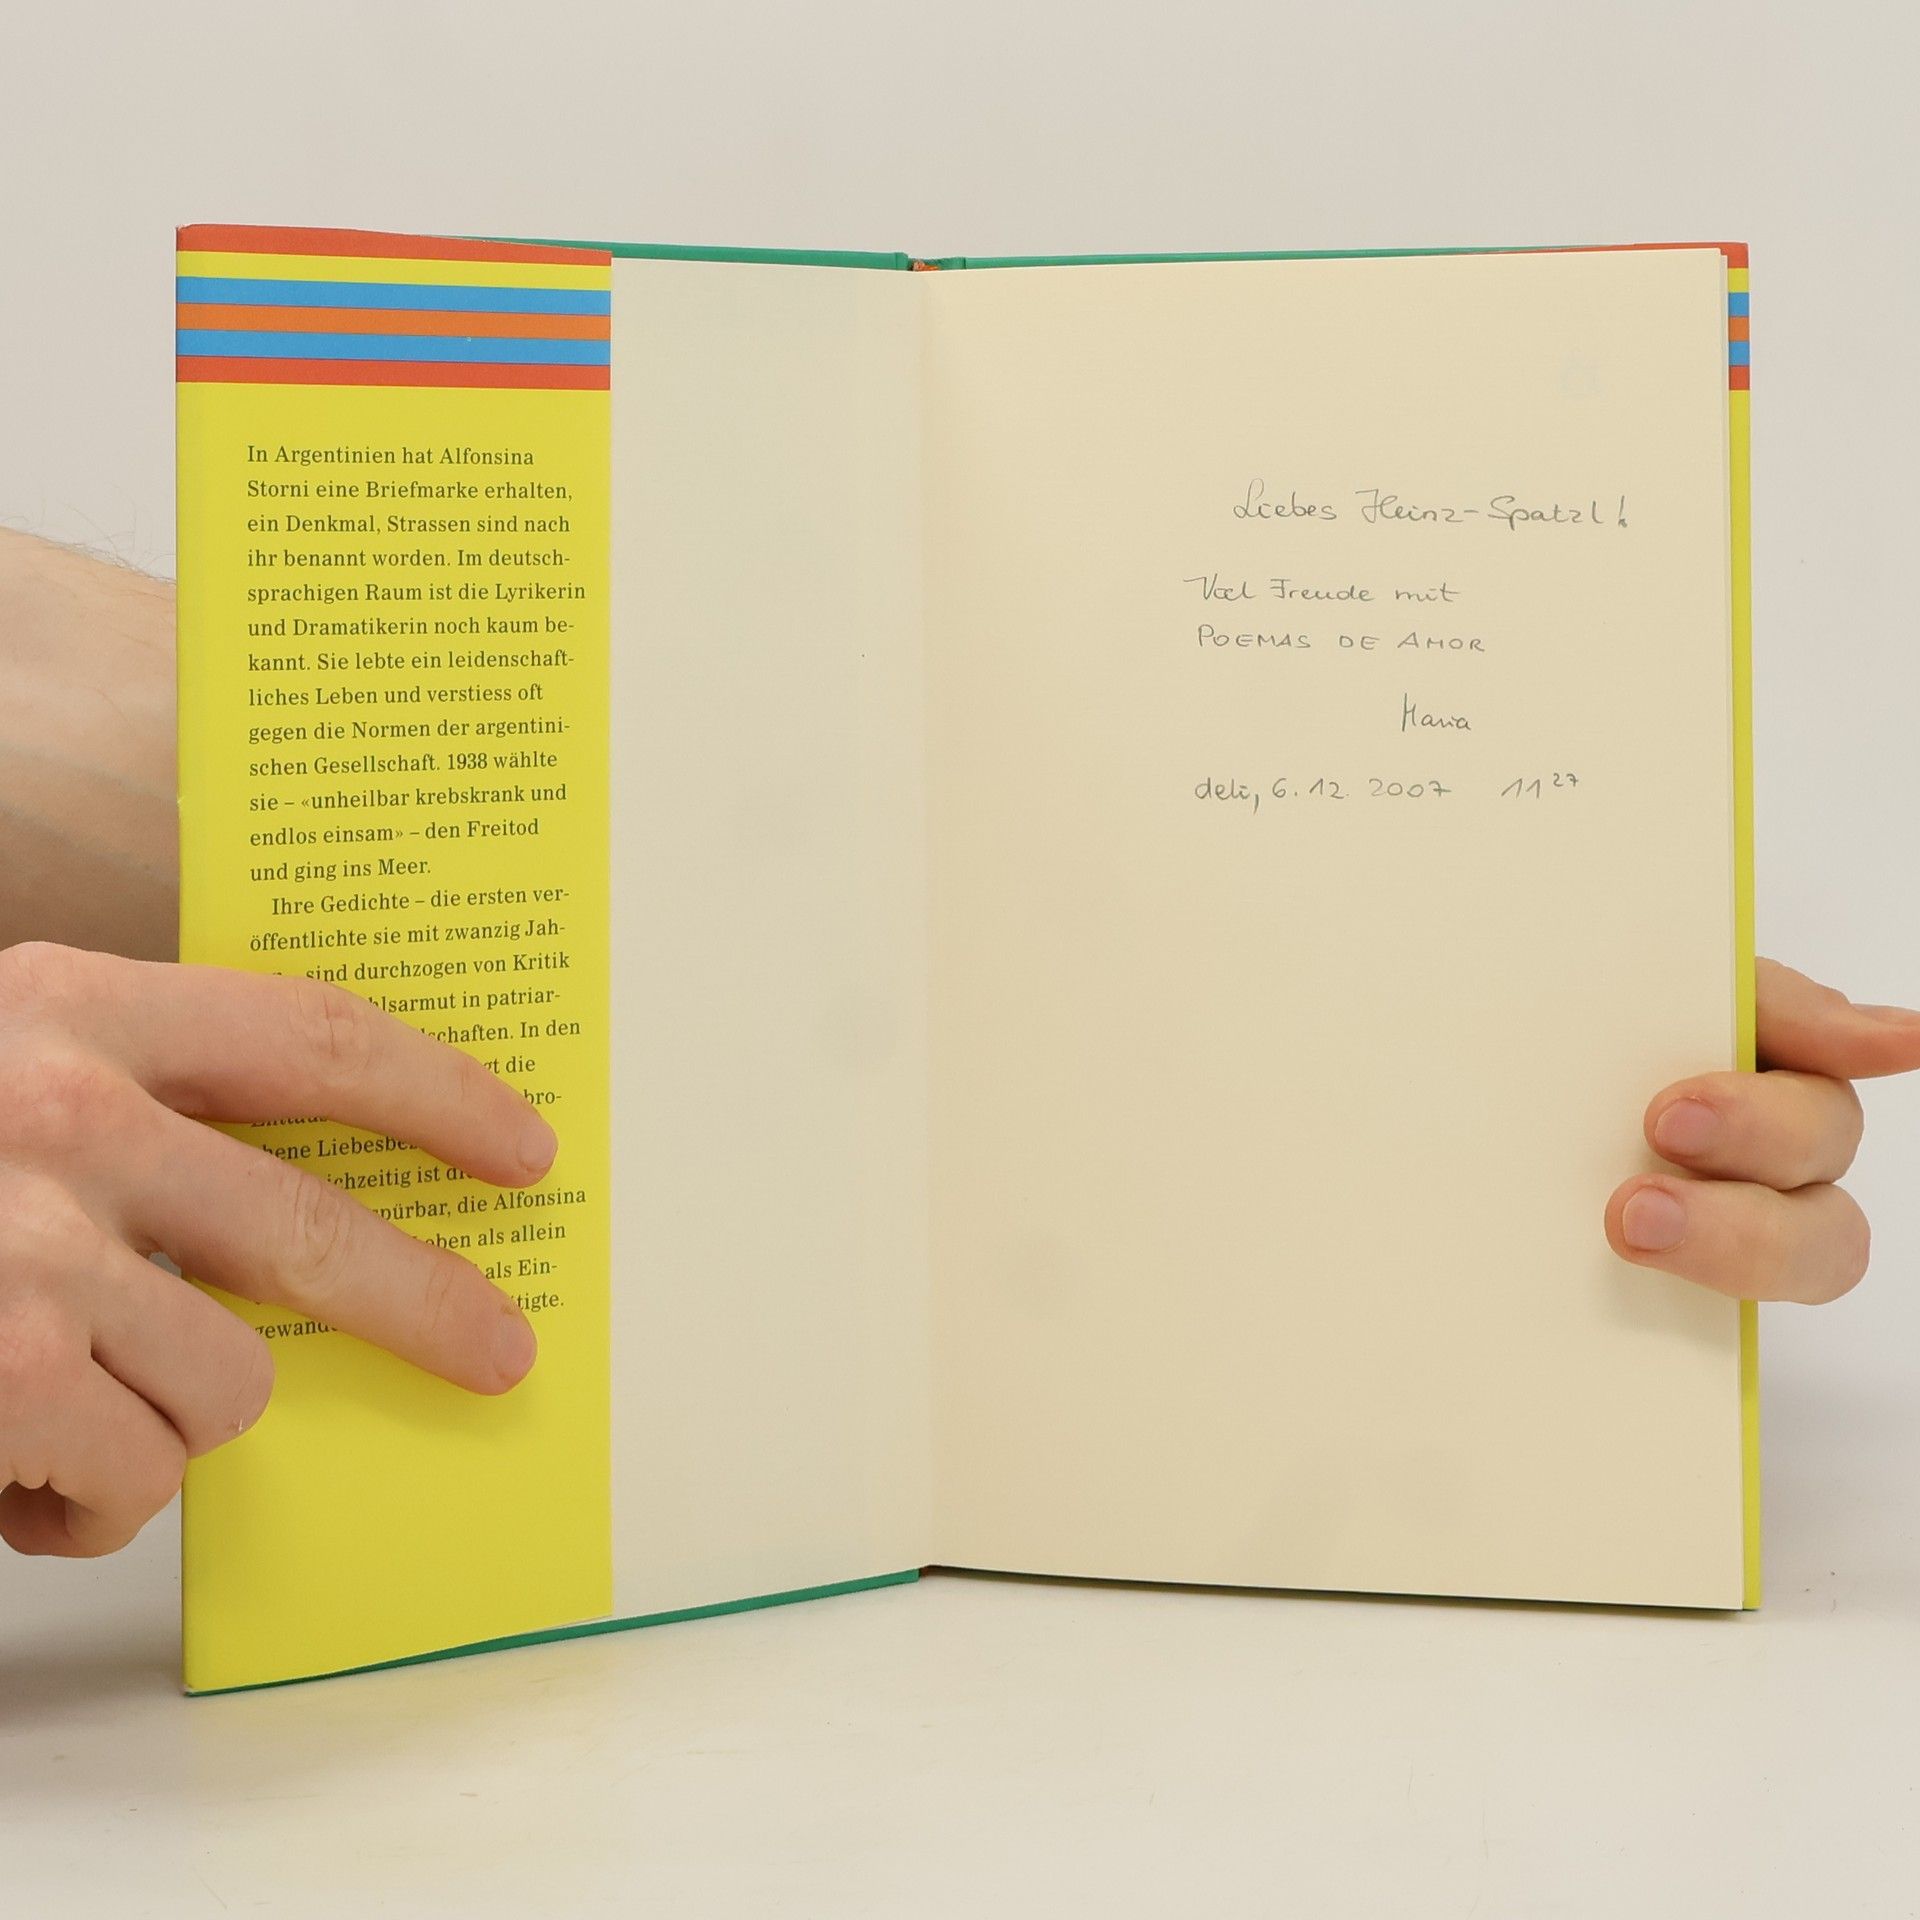 In Argentinien hat Alfonsina
Storni eine Briefmarke erhalten,
ein Denkmal, Strassen sind nach
ihr benannt worden. Im deutsch-
sprachigen Raum ist die Lyrikerin
und Dramatikerin noch kaum be-
kannt. Sie lebte ein leidenschaft-
liches Leben und verstiess oft
gegen die Normen der argentini-
schen Gesellschaft. 1938 wählte
sie – «unheilbar krebskrank und
endlos einsam» – den Freitod
und ging ins Meer.
Ihre Gedichte – die ersten ver-
öffentlichte sie mit zwanzig Jah-
sind durchzogen von Kritik
lsarmut in patriar-
schaften. In den
gt die
bro-
hene Liebesbe
ichzeitig ist di
spürbar, die Alfonsina
Leben als allein
als Ein-
tigte.
gewand
Liebes Heinz-Spatzl!
Viel Freude mit
POEMAS DE AMOR
Maria
deli, 6. 12. 2007 11 27